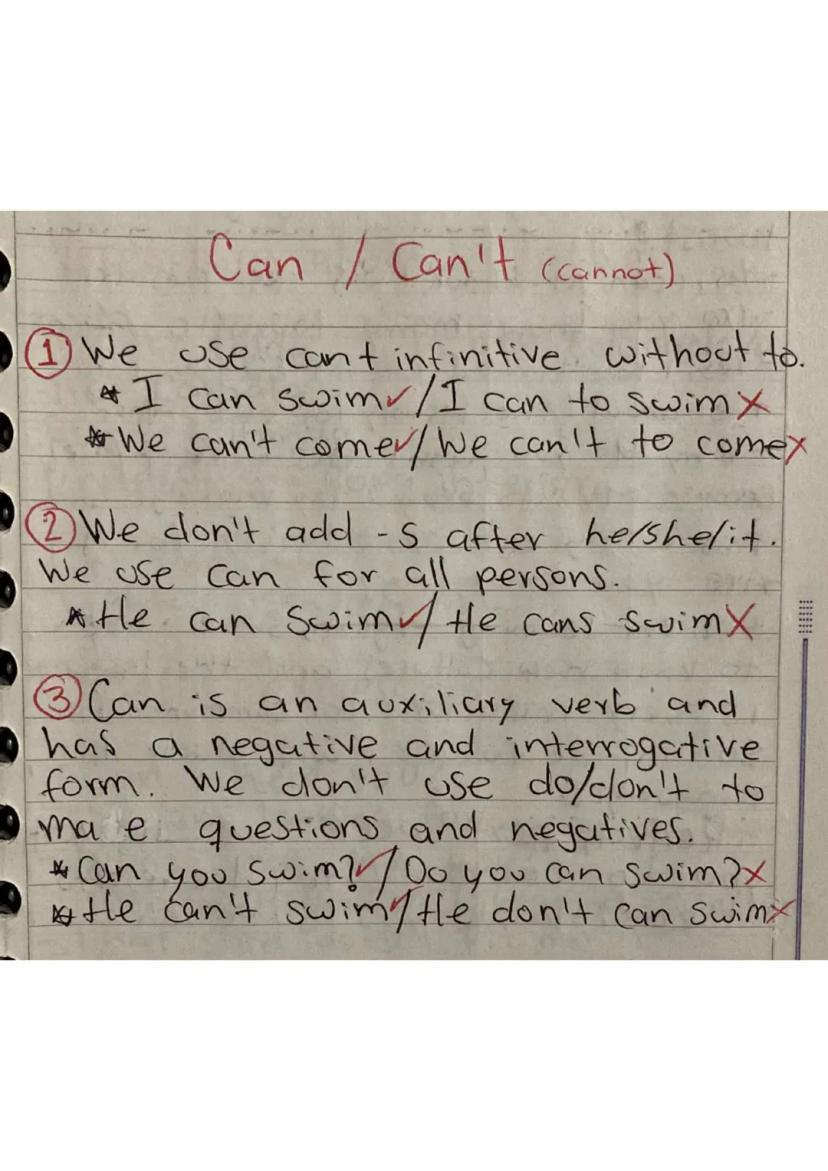 Can / Can't (cannot)
① We use can+infinitive without to.
* I can swim✓/I can to swim X
* We can't come✓/We can't to come X
② We don't add -s after he/she/it.
We use can for all persons.
* He can swim✓/ He cans swim X
③ Can is an auxiliary verb and
has a negative and interrogative
form. We don't use do/don't to
ma e questions and negatives.
* Can you swim?✓/ Do you can swim? X
* He can't swim✓/He don't can swim X